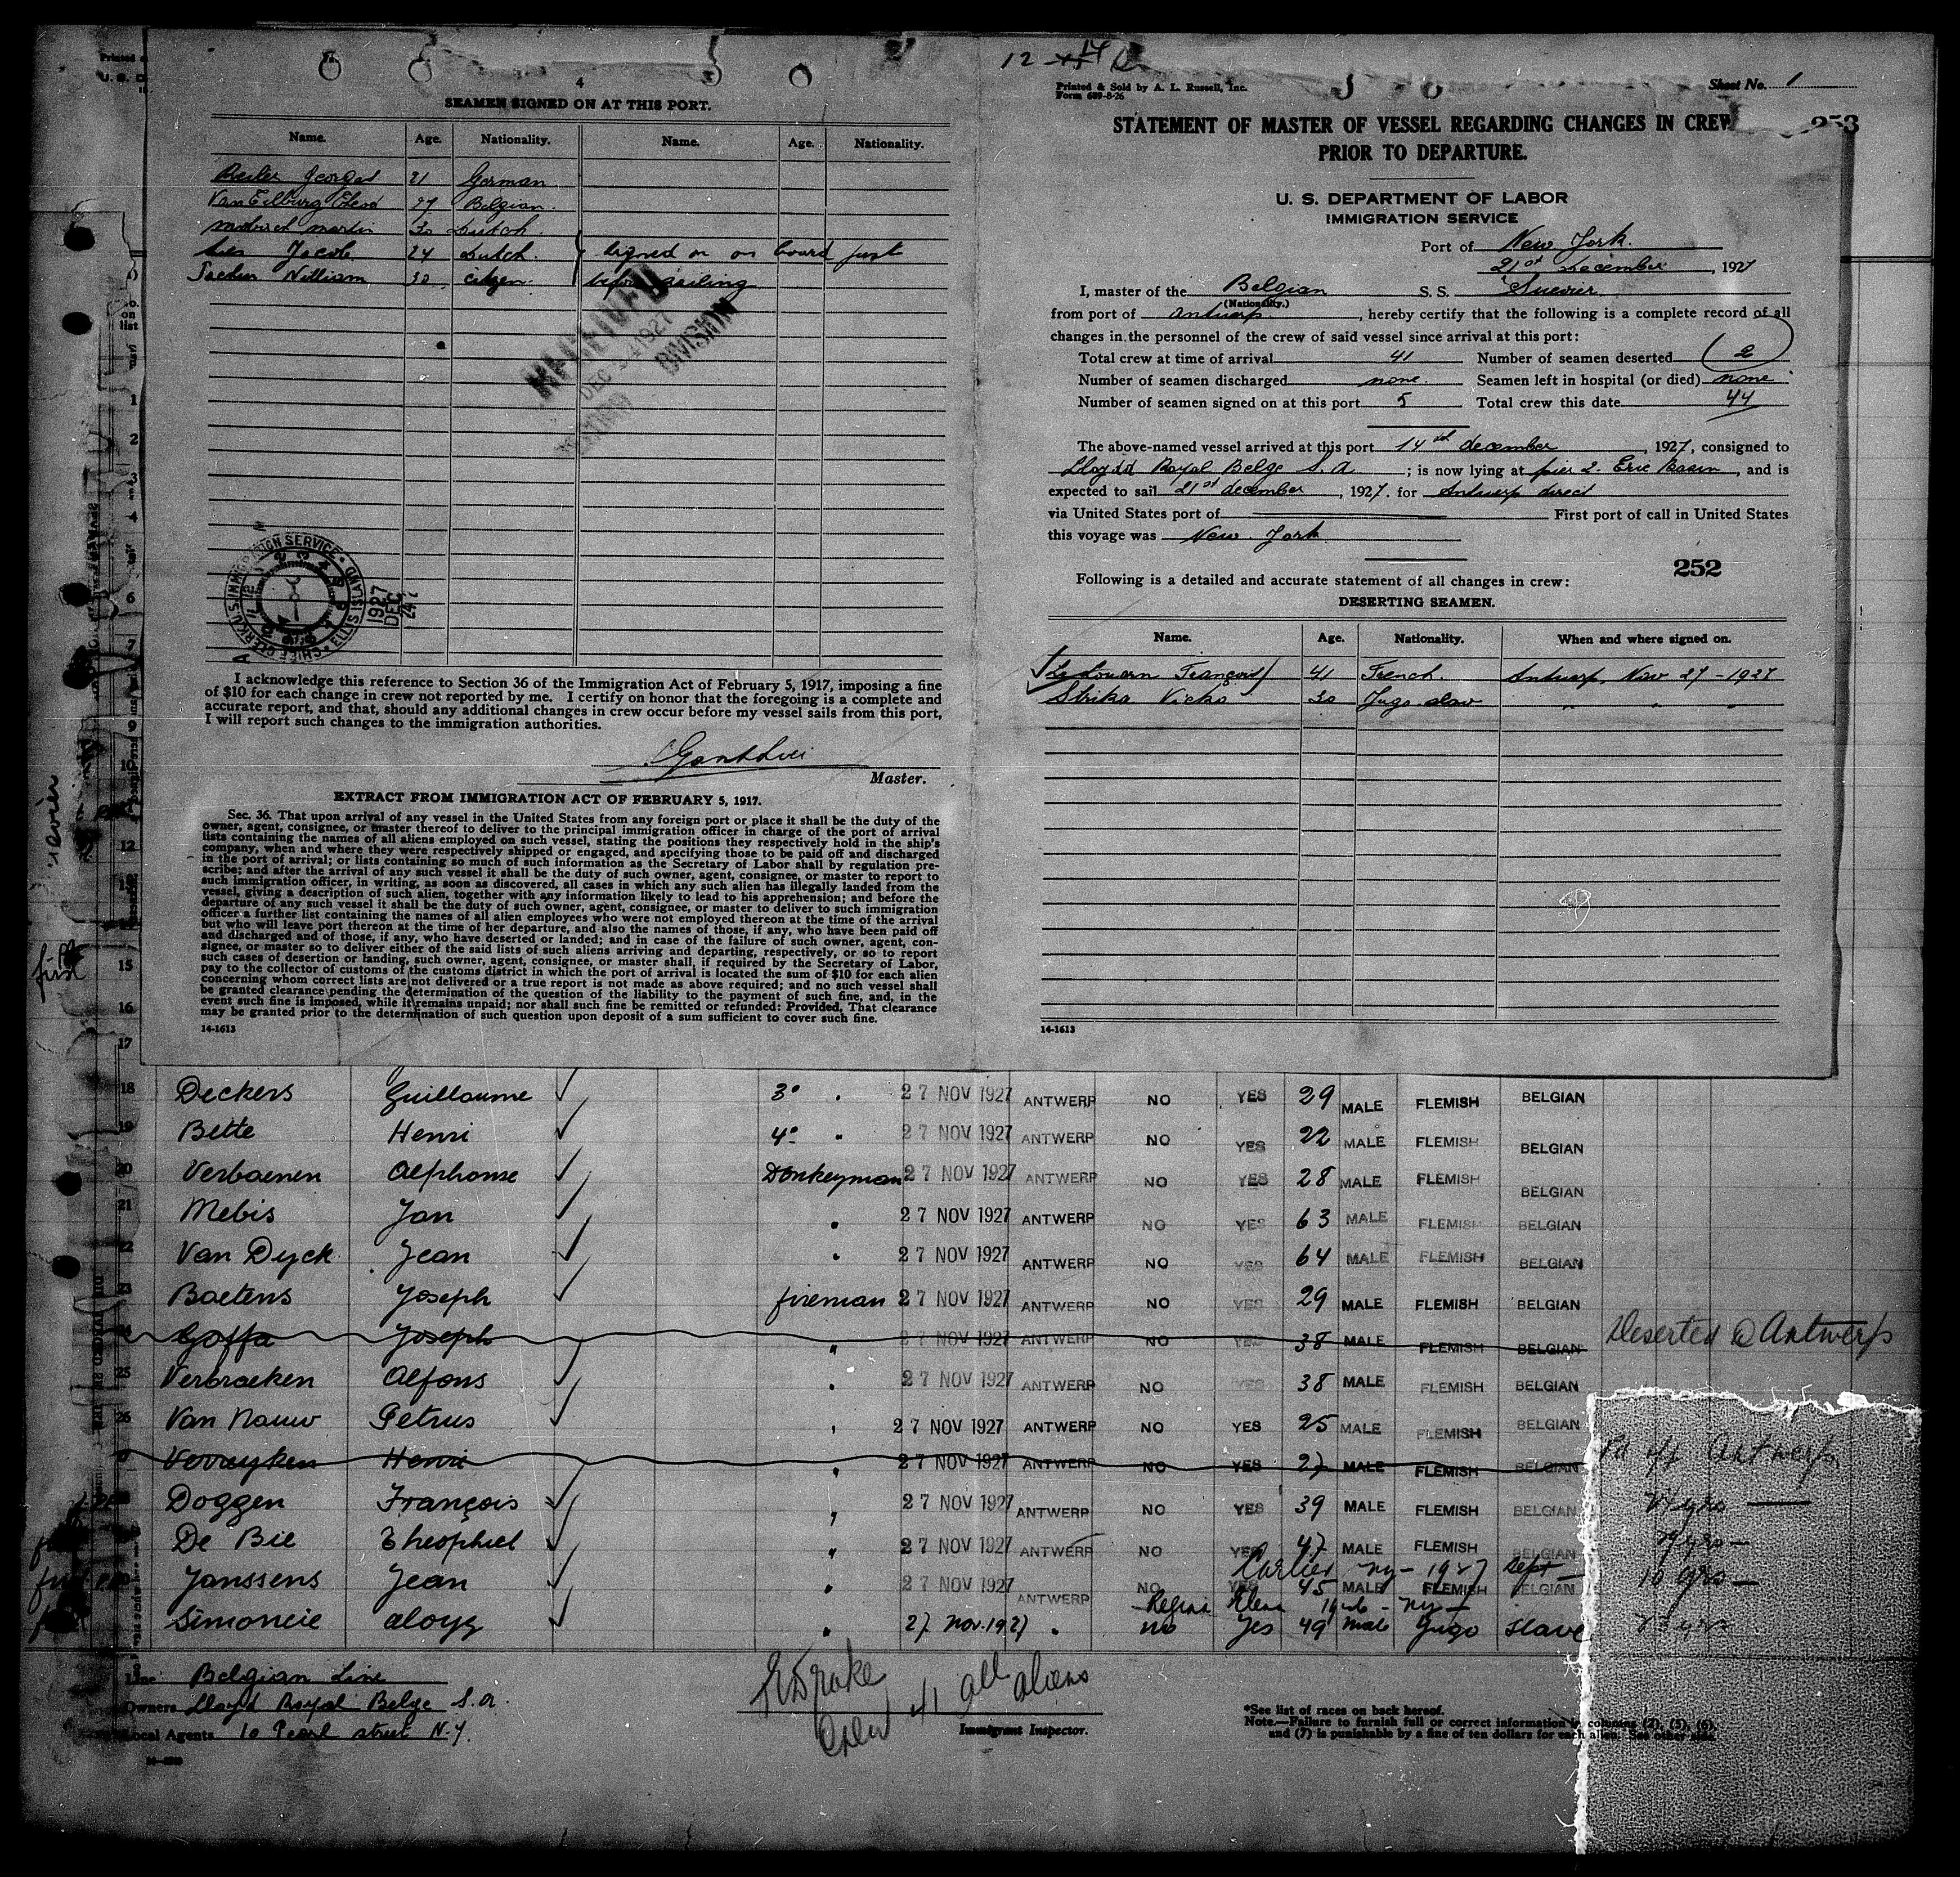 4
SEAMEN SIGNED ON AT THIS PORT.
Name. Age. Nationality. Name. Age. Nationality.
Georges 21 German
27 Belgian.
Martin 30 Dutch.
Jacob 24 Dutch. signed on on board just
William 30 citizen. before sailing
DEC 1927
DIVISION
CHIEF CLERK U.S. IMMIGRATION SERVICE • ELLIS ISLAND
1927
DEC
24
I acknowledge this reference to Section 36 of the Immigration Act of February 5, 1917, imposing a fine
of $10 for each change in crew not reported by me. I certify on honor that the foregoing is a complete and
accurate report, and that, should any additional changes in crew occur before my vessel sails from this port,
I will report such changes to the immigration authorities.
Master.
EXTRACT FROM IMMIGRATION ACT OF FEBRUARY 5, 1917.
Sec. 36. That upon arrival of any vessel in the United States from any foreign port or place it shall be the duty of the
owner, agent, consignee, or master thereof to deliver to the principal immigration officer in charge of the port of arrival
lists containing the names of all aliens employed on such vessel, stating the positions they respectively hold in the ship's
company, when and where they were respectively shipped or engaged, and specifying those to be paid off and discharged
in the port of arrival; or lists containing so much of such information as the Secretary of Labor shall by regulation pre-
scribe; and after the arrival of any such vessel it shall be the duty of such owner, agent, consignee, or master to report to
such immigration officer, in writing, as soon as discovered, all cases in which any such alien has illegally landed from the
vessel, giving a description of such alien, together with any information likely to lead to his apprehension; and before the
departure of any such vessel it shall be the duty of such owner, agent, consignee, or master to deliver to such immigration
officer a further list containing the names of all alien employees who were not employed thereon at the time of the arrival
but who will leave port thereon at the time of her departure, and also the names of those, if any, who have been paid off
and discharged and of those, if any, who have deserted or landed; and in case of the failure of such owner, agent, con-
signee, or master so to deliver either of the said lists of such aliens arriving and departing, respectively, or so to report
such cases of desertion or landing, such owner, agent, consignee, or master shall, if required by the Secretary of Labor,
pay to the collector of customs of the customs district in which the port of arrival is located the sum of $10 for each alien
concerning whom correct lists are not delivered or a true report is not made as above required; and no such vessel shall
be granted clearance pending the determination of the question of the liability to the payment of such fine, and, in the
event such fine is imposed, while it remains unpaid; nor shall such fine be remitted or refunded: Provided, That clearance
may be granted prior to the determination of such question upon deposit of a sum sufficient to cover such fine.
14-1613
12
Printed & Sold by A. L. Russell, Inc.
Form 689-8-26
Sheet No. 1
253
STATEMENT OF MASTER OF VESSEL REGARDING CHANGES IN CREW
PRIOR TO DEPARTURE.
U. S. DEPARTMENT OF LABOR
IMMIGRATION SERVICE
Port of New York.
21st December, 1927
I, master of the Belgian S. S. Suevier
(Nationality.)
from port of Antwerp, hereby certify that the following is a complete record of all
changes in the personnel of the crew of said vessel since arrival at this port:
Total crew at time of arrival 41 Number of seamen deserted 2
Number of seamen discharged none. Seamen left in hospital (or died) none
Number of seamen signed on at this port 5 Total crew this date 44
The above-named vessel arrived at this port 14th december, 1927, consigned to
Lloyd Royal Belge S. A.; is now lying at pier 2. Erie Basin, and is
expected to sail 21st december, 1927. for Antwerp direct
via United States port of First port of call in United States
this voyage was New York
252
Following is a detailed and accurate statement of all changes in crew:
DESERTING SEAMEN.
Name. Age. Nationality. When and where signed on.
François 41 French. Antwerp, Nov 27 - 1927
Strika Vicko 30 Jugo-slav " " "
14-1613
18 Deckers Guillaume 3° " 27 NOV 1927 ANTWERP NO YES 29 MALE FLEMISH BELGIAN
19 Bette Henri 4° " 27 NOV 1927 ANTWERP NO YES 22 MALE FLEMISH BELGIAN
20 Verbaenen Alphonse Donkeyman 27 NOV 1927 ANTWERP NO YES 28 MALE FLEMISH BELGIAN
21 Mebis Jan " 27 NOV 1927 ANTWERP NO YES 63 MALE FLEMISH BELGIAN
22 Van Dyck Jean " 27 NOV 1927 ANTWERP NO YES 64 MALE FLEMISH BELGIAN
23 Baetens Joseph fireman 27 NOV 1927 ANTWERP NO YES 29 MALE FLEMISH BELGIAN
24 Goffa Joseph " 27 NOV 1927 ANTWERP NO YES 38 MALE FLEMISH BELGIAN Deserted @ Antwerp
25 Verbraeken Alfons " 27 NOV 1927 ANTWERP NO YES 38 MALE FLEMISH BELGIAN
26 Van Nauw Petrus " 27 NOV 1927 ANTWERP NO YES 25 MALE FLEMISH BELGIAN
Verreyken Henri " 27 NOV 1927 ANTWERP NO YES 27 MALE FLEMISH BELGIAN Antwerp
Doggen François " 27 NOV 1927 ANTWERP NO YES 39 MALE FLEMISH BELGIAN
De Bie Theophiel " 27 NOV 1927 ANTWERP NO YES 47 MALE FLEMISH BELGIAN
Carlier NY - 1927 Dept
Janssens Jean " 27 NOV 1927 ANTWERP NO YES 45 MALE FLEMISH BELGIAN 10 yrs
Simoncic Aloyz " 27 Nov. 1927 " no Yes 49 Male Yugo slave
Line Belgian Line
Owners Lloyd Royal Belge S.A.
Local Agents 10 Pearl street N.Y.
Crew 41 all aliens
Immigrant Inspector.
*See list of races on back hereof.
Note.—Failure to furnish full or correct information in columns (2), (5), (6),
and (7) is punishable by a fine of ten dollars for each alien. See other side.